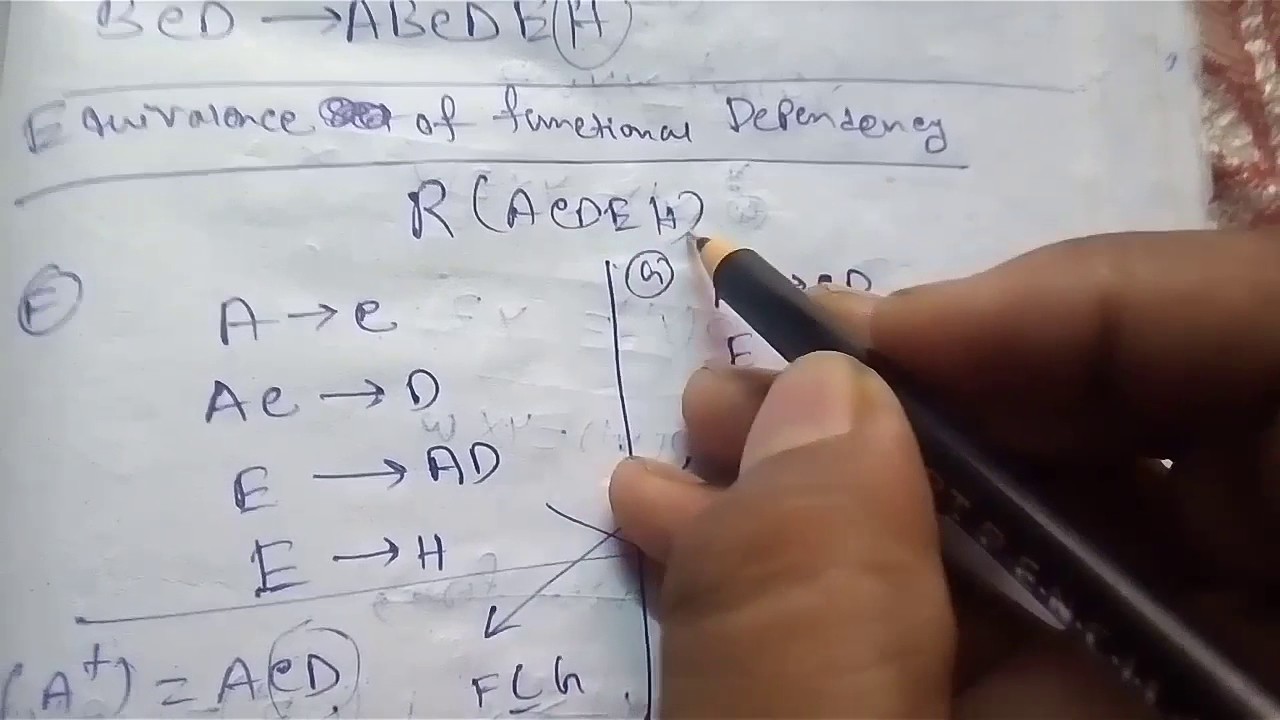 BCD → ABCDE(H)
Equivalence of functional Dependency
R(ACDEH)
F
A → C
AC → D
E → AD
E → H
(A+) = ACD
F ⊆ G
G
→ CD
E